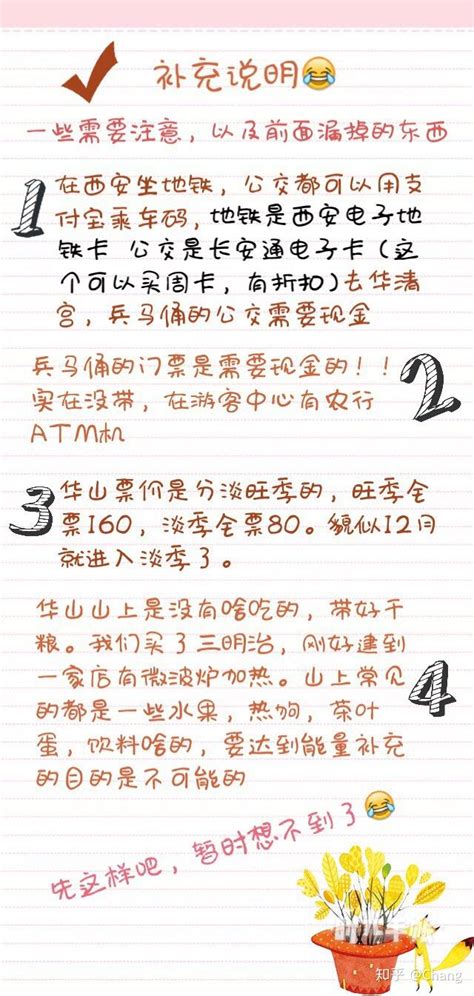 补充说明😂
一些需要注意，以及前面漏掉的东西
1
在西安坐地铁，公交都可以用支
付宝乘车码，地铁是西安电子地
铁卡 公交是长安通电子卡（这
个可以买周卡，有折扣）去华清
宫，兵马俑的公交需要现金
兵马俑的门票是需要现金的！！
实在没带，在游客中心有农行
ATM机
2
3
华山票价是分淡旺季的，旺季全
票160，淡季全票80。貌似12月
就进入淡季了。
华山山上是没有啥吃的，带好干
粮。我们买了三明治，刚好逮到
一家店有微波炉加热。山上常见
的都是一些水果，热狗，茶叶
蛋，饮料啥的，要达到能量补充
的目的是不可能的
4
先这样吧，暂时想不到了😂
知乎 @Chang